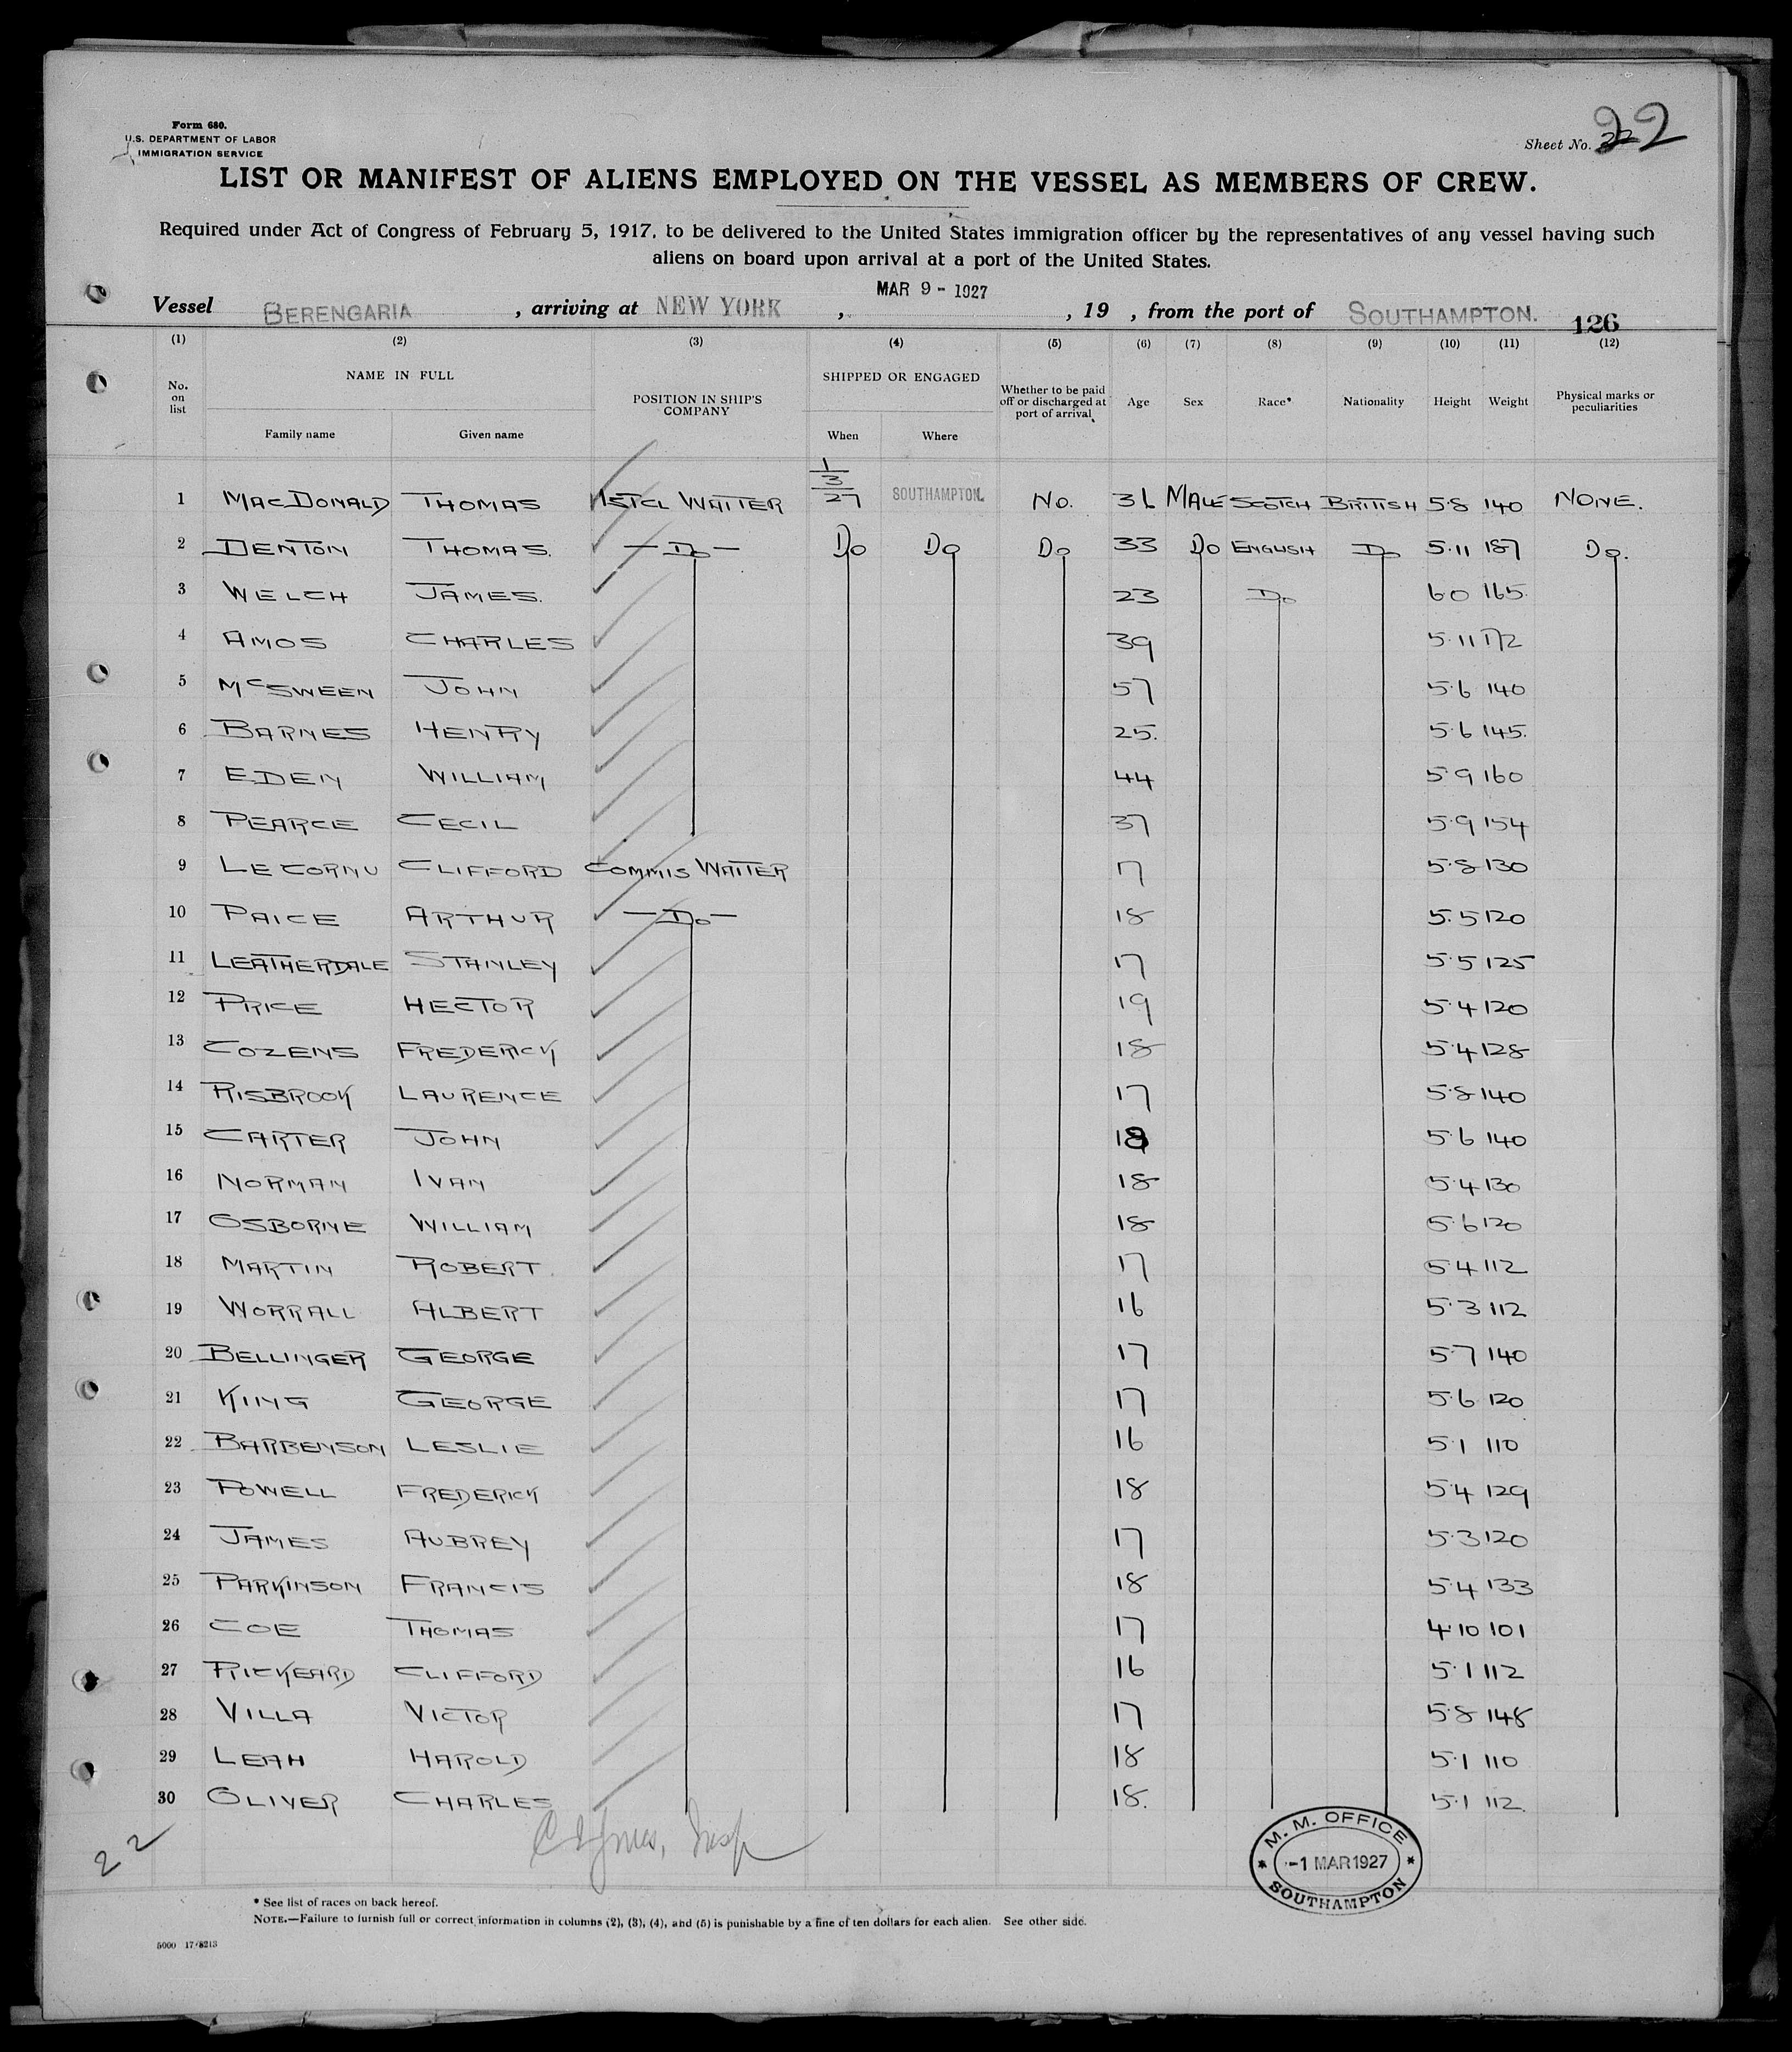 Form 680.
U.S. DEPARTMENT OF LABOR
IMMIGRATION SERVICE
Sheet No. 22
LIST OR MANIFEST OF ALIENS EMPLOYED ON THE VESSEL AS MEMBERS OF CREW.
Required under Act of Congress of February 5, 1917, to be delivered to the United States immigration officer by the representatives of any vessel having such
aliens on board upon arrival at a port of the United States.
MAR 9 - 1927
Vessel BERENGARIA , arriving at NEW YORK , , 19 , from the port of SOUTHAMPTON. 126
(1) (2) (3) (4) (5) (6) (7) (8) (9) (10) (11) (12)
No. on list NAME IN FULL POSITION IN SHIP'S COMPANY SHIPPED OR ENGAGED Whether to be paid off or discharged at port of arrival Age Sex Race* Nationality Height Weight Physical marks or peculiarities
Family name Given name When Where
1 MACDONALD THOMAS 1STCL WAITER 1/3/27 SOUTHAMPTON. No. 36 MALE SCOTCH BRITISH 5·8 140 NONE.
2 DENTON THOMAS. —Do— Do Do Do 33 Do ENGLISH Do 5·11 187 Do.
3 WELCH JAMES. 23 Do 6·0 165
4 AMOS CHARLES 39 5·11 172
5 McSWEEN JOHN 57 5·6 140
6 BARNES HENRY 25. 5·6 145.
7 EDEN WILLIAM 44 5·9 160
8 PEARCE CECIL 37 5·9 154
9 LE CORNU CLIFFORD COMMIS WAITER 17 5·8 130
10 PAICE ARTHUR —Do— 18 5·5 120
11 LEATHERDALE STANLEY 17 5·5 125
12 PRICE HECTOR 19 5·4 120
13 COZENS FREDERICK 18 5·4 128
14 RISBROOK LAURENCE 17 5·8 140
15 CARTER JOHN 5·6 140
16 NORMAN IVAN 18 5·4 130
17 OSBORNE WILLIAM 18 5·6 120
18 MARTIN ROBERT. 17 5·4 112
19 WORRALL ALBERT 16 5·3 112
20 BELLINGER GEORGE 17 5·7 140
21 KING GEORGE 17 5·6 120
22 BARBENSON LESLIE 16 5·1 110
23 POWELL FREDERICK 18 5·4 129
24 JAMES AUBREY 17 5·3 120
25 PARKINSON FRANCIS 18 5·4 133
26 COE THOMAS 17 4·10 101
27 RICKEARD CLIFFORD 16 5·1 112
28 VILLA VICTOR 17 5·8 148
29 LEAH HAROLD 18 5·1 110
30 OLIVER CHARLES 18. 5·1 112.
22
Insp
M. M. OFFICE
-1 MAR 1927
SOUTHAMPTON
* See list of races on back hereof.
NOTE.—Failure to furnish full or correct information in columns (2), (3), (4), and (5) is punishable by a fine of ten dollars for each alien. See other side.
5000 17/8213